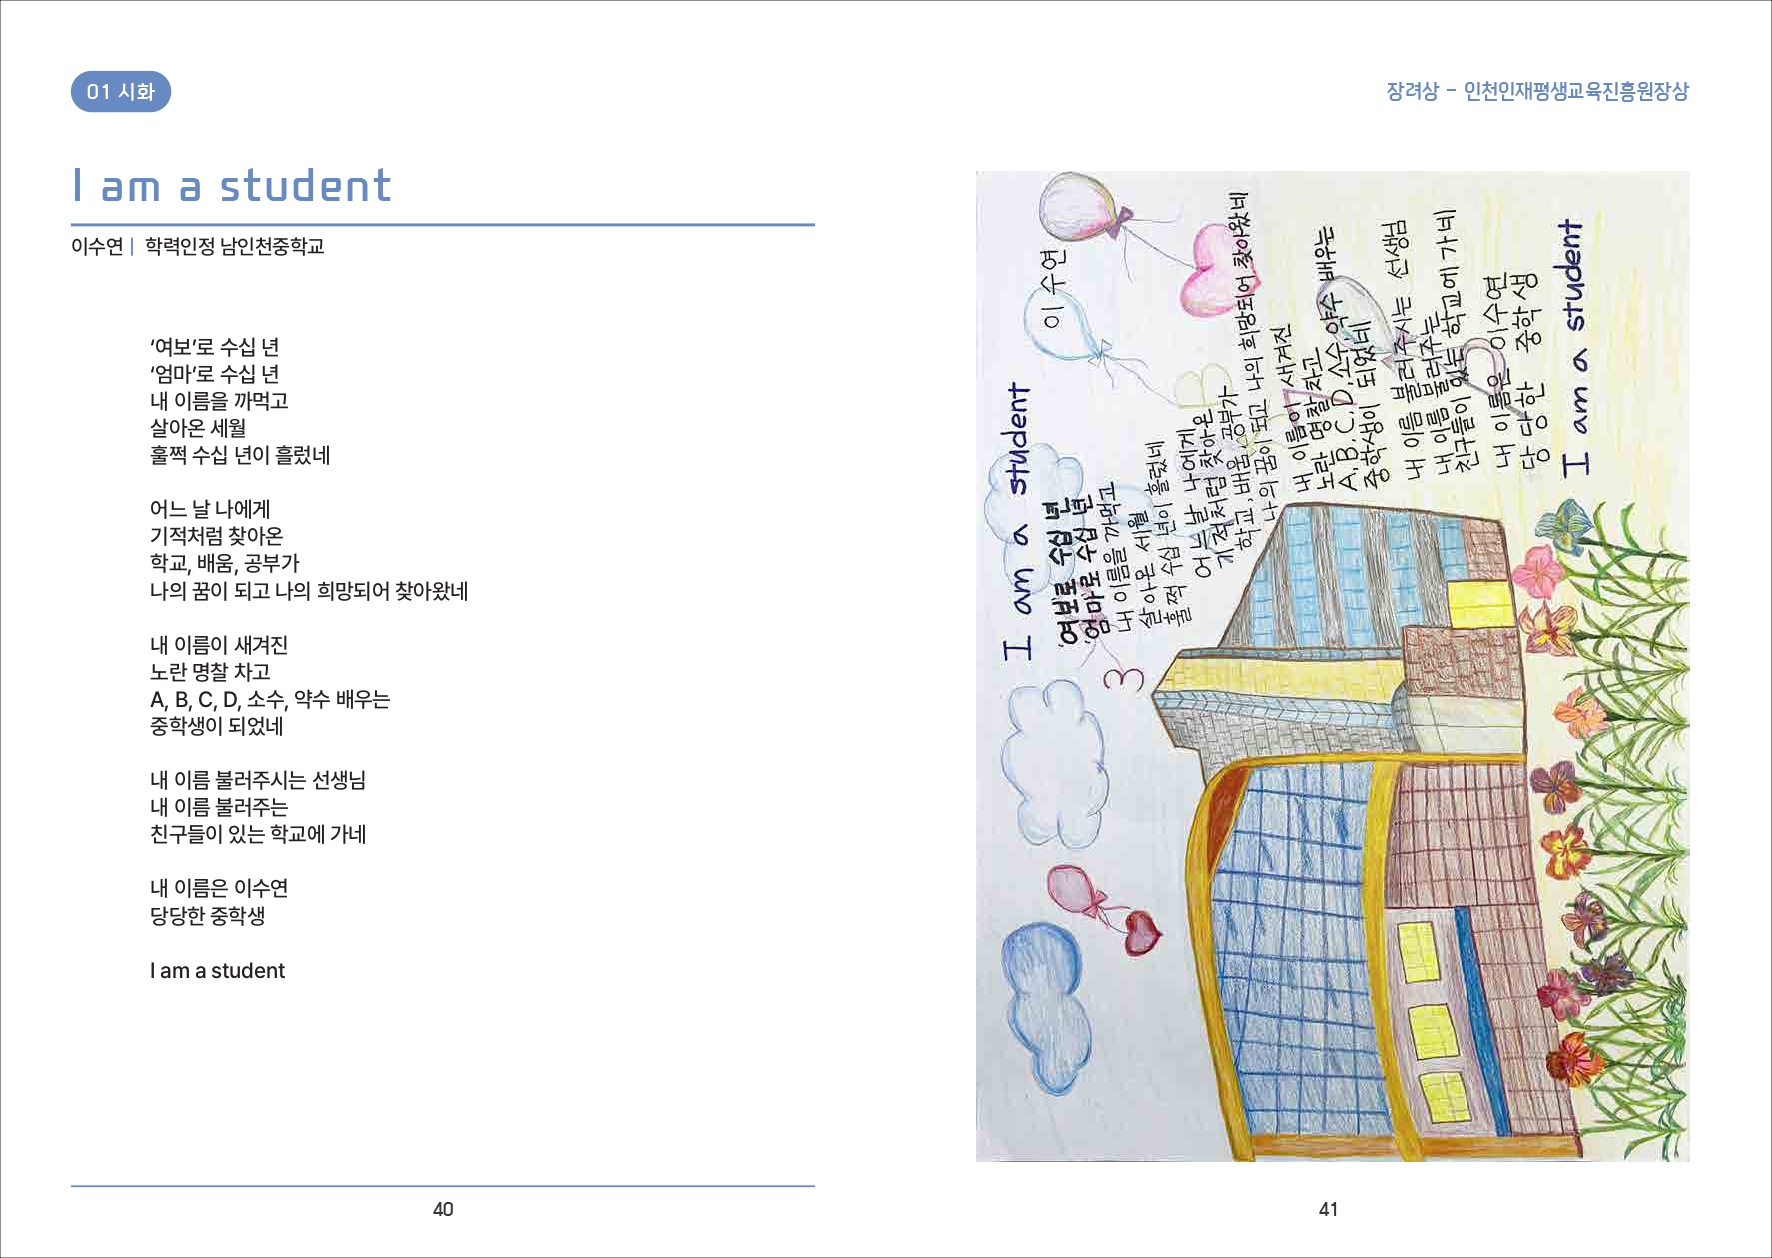 01 시화
장려상 - 인천인재평생교육진흥원장상
I am a student
이수연 | 학력인정 남인천중학교
‘여보’로 수십 년
‘엄마’로 수십 년
내 이름을 까먹고
살아온 세월
훌쩍 수십 년이 흘렀네
어느 날 나에게
기적처럼 찾아온
학교, 배움, 공부가
나의 꿈이 되고 나의 희망되어 찾아왔네
내 이름이 새겨진
노란 명찰 차고
A, B, C, D, 소수, 약수 배우는
중학생이 되었네
내 이름 불러주시는 선생님
내 이름 불러주는
친구들이 있는 학교에 가네
내 이름은 이수연
당당한 중학생
I am a student
40
I am a student
이수연
'여보'로 수십 년
'엄마'로 수십 년
내 이름을 까먹고
살아온 세월
훌쩍 수십 년이 흘렀네
어느 날 나에게
기적처럼 찾아온
학교, 배움, 공부가
나의 꿈이 되고 나의 희망되어 찾아왔네
내 이름이 새겨진
노란 명찰 차고
A, B, C, D, 소수, 약수 배우는
중학생이 되었네
내 이름 불러주시는 선생님
내 이름 불러주는
친구들이 있는 학교에 가네
내 이름은 이수연
당당한 중학생
I am a student
3
B
41